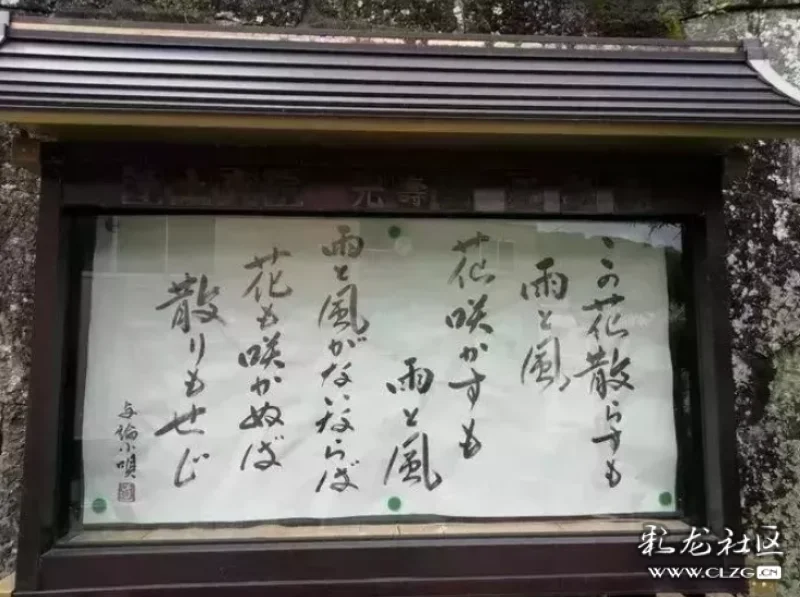 この花散らすも
雨と風
花咲かすも
雨と風
雨と風がないならば
花も咲かぬば
散りもせじ
与論小唄
彩龙社区
WWW.CLZG.CN